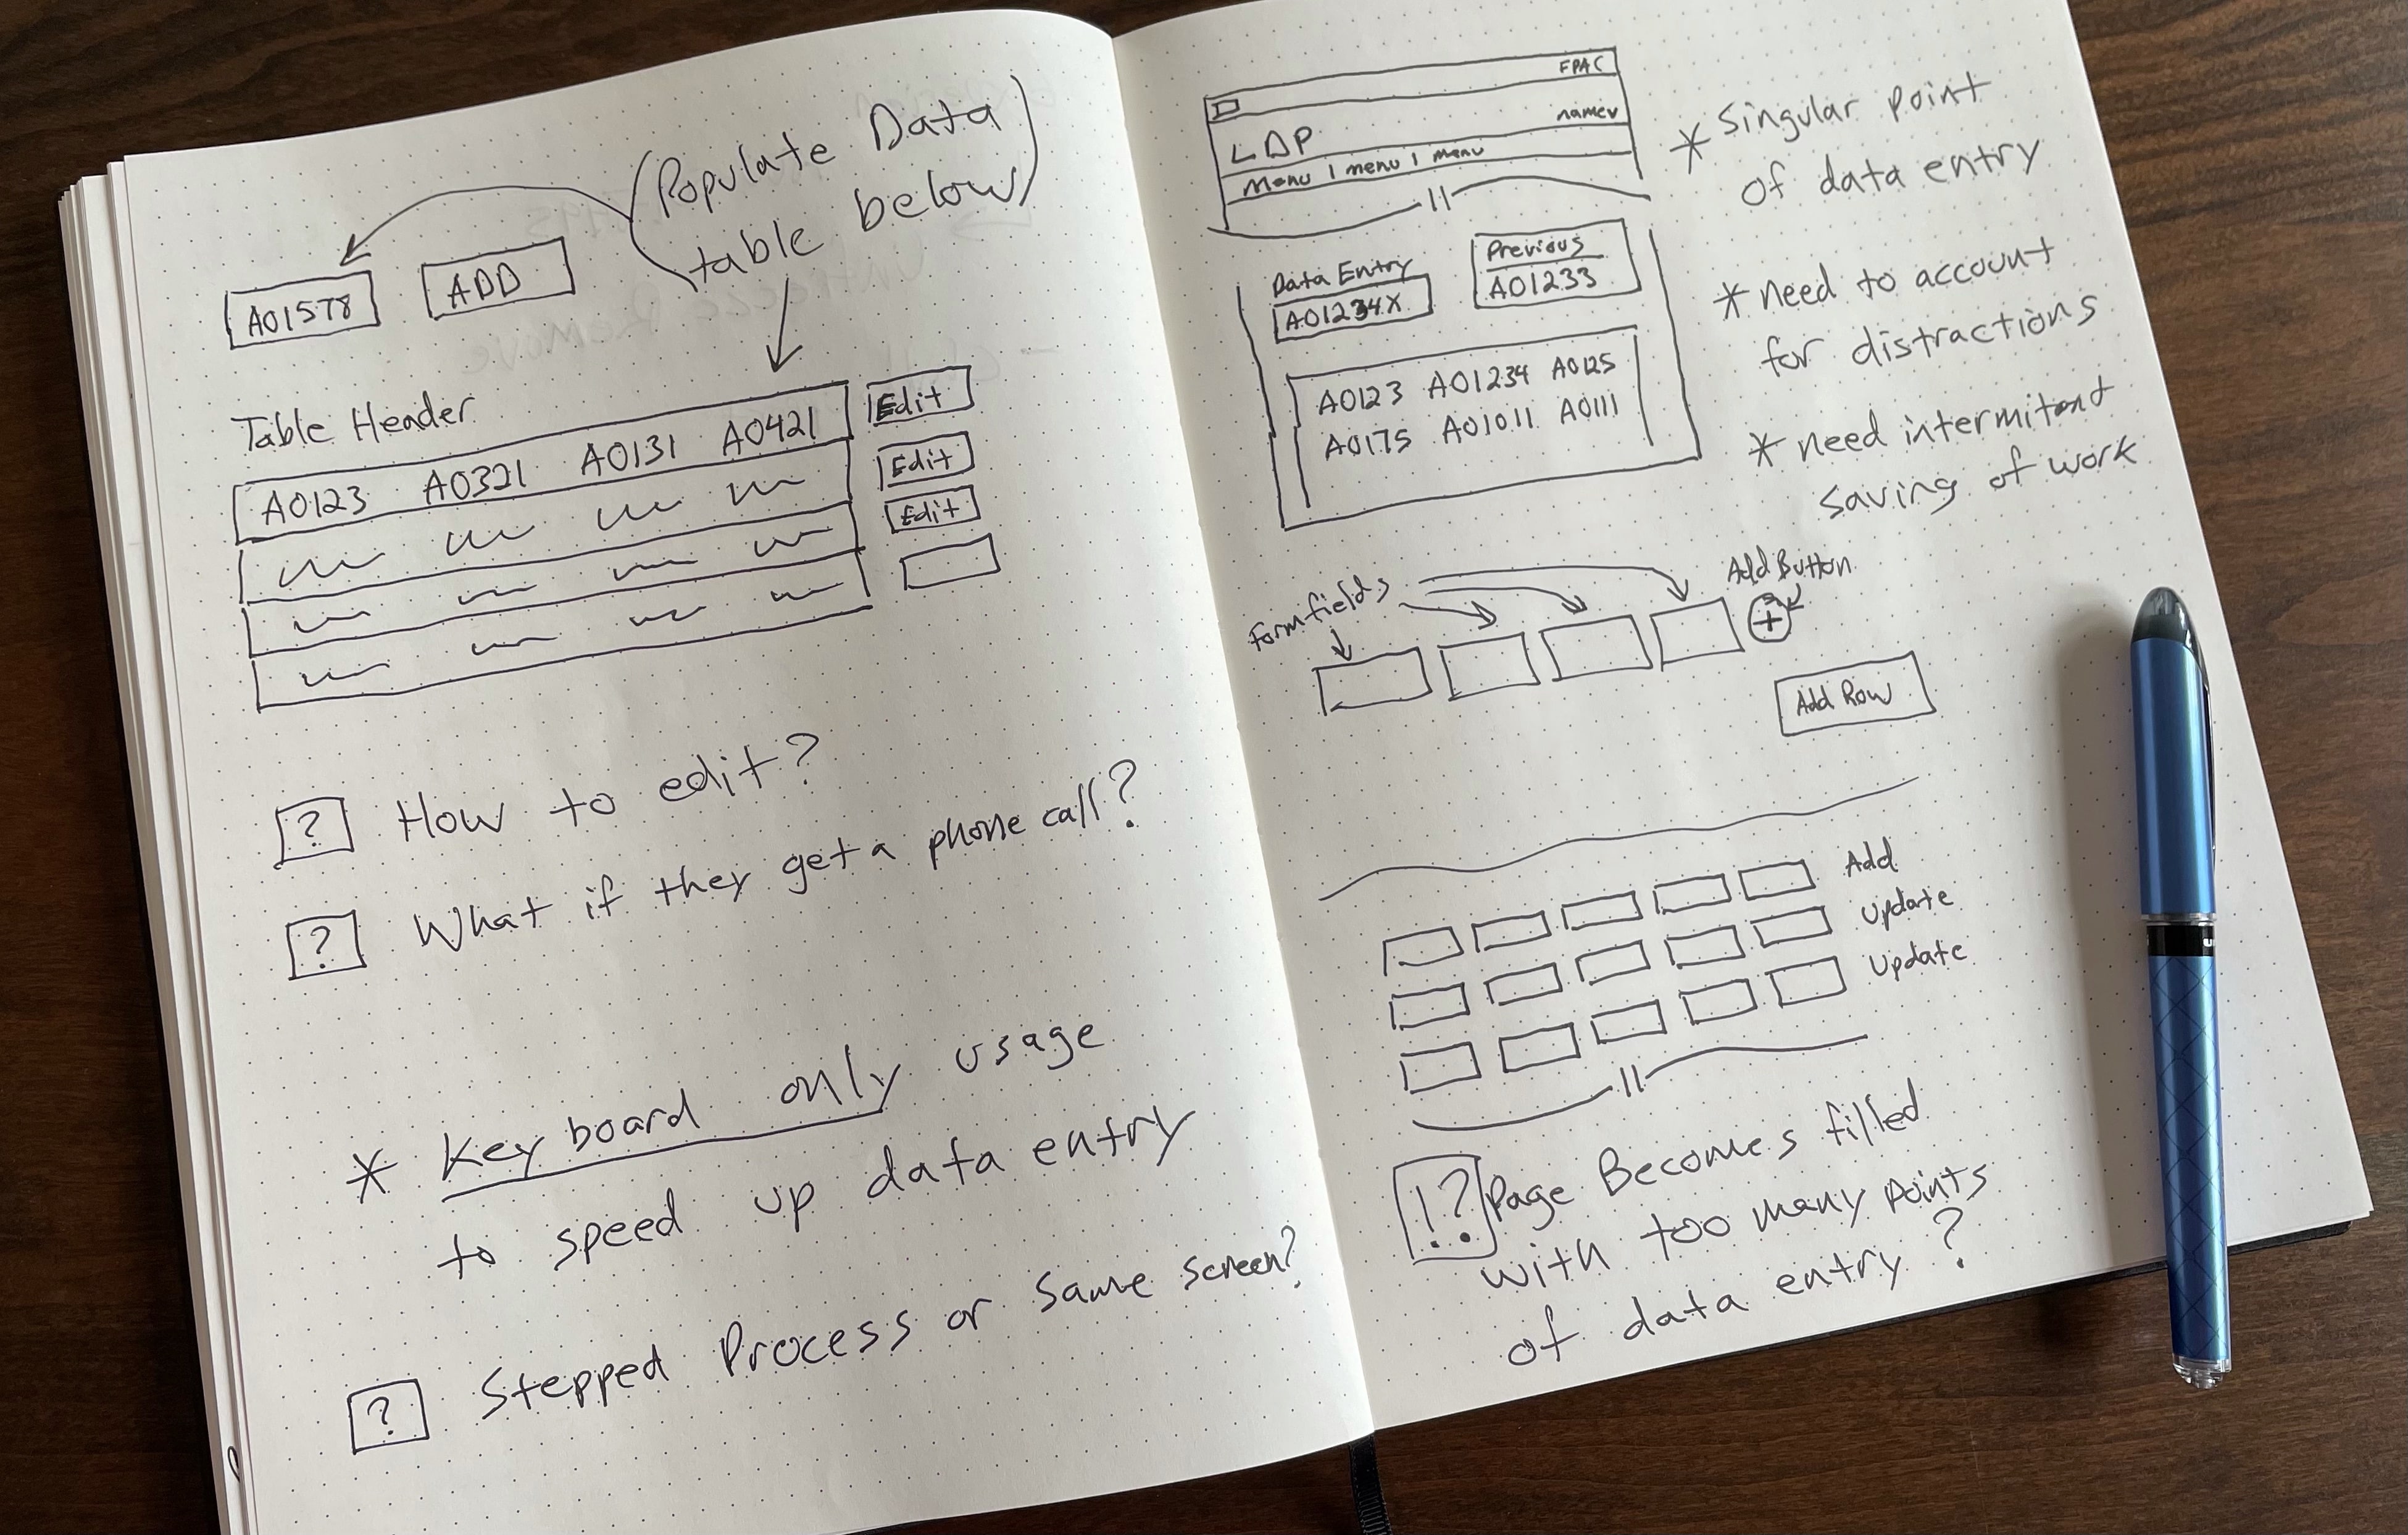 (Populate Data
table below)
A01578
ADD
Table Header
A0123 A0321 A0131 A0421
Edit
Edit
Edit
? How to edit?
? What if they get a phone call?
* Keyboard only usage
to speed up data entry
? Stepped Process or same screen?
FPAC
LDP
menu | menu | menu
Data Entry
A01234X
Previous
A01233
A0123 A01234 A0125
A0175 A01011 A0111
* Singular point
of data entry
* need to account
for distractions
* need intermitent
saving of work
Form fields
Add Button
+
Add Row
Add
update
update
!? Page Becomes filled
with too many points
of data entry?